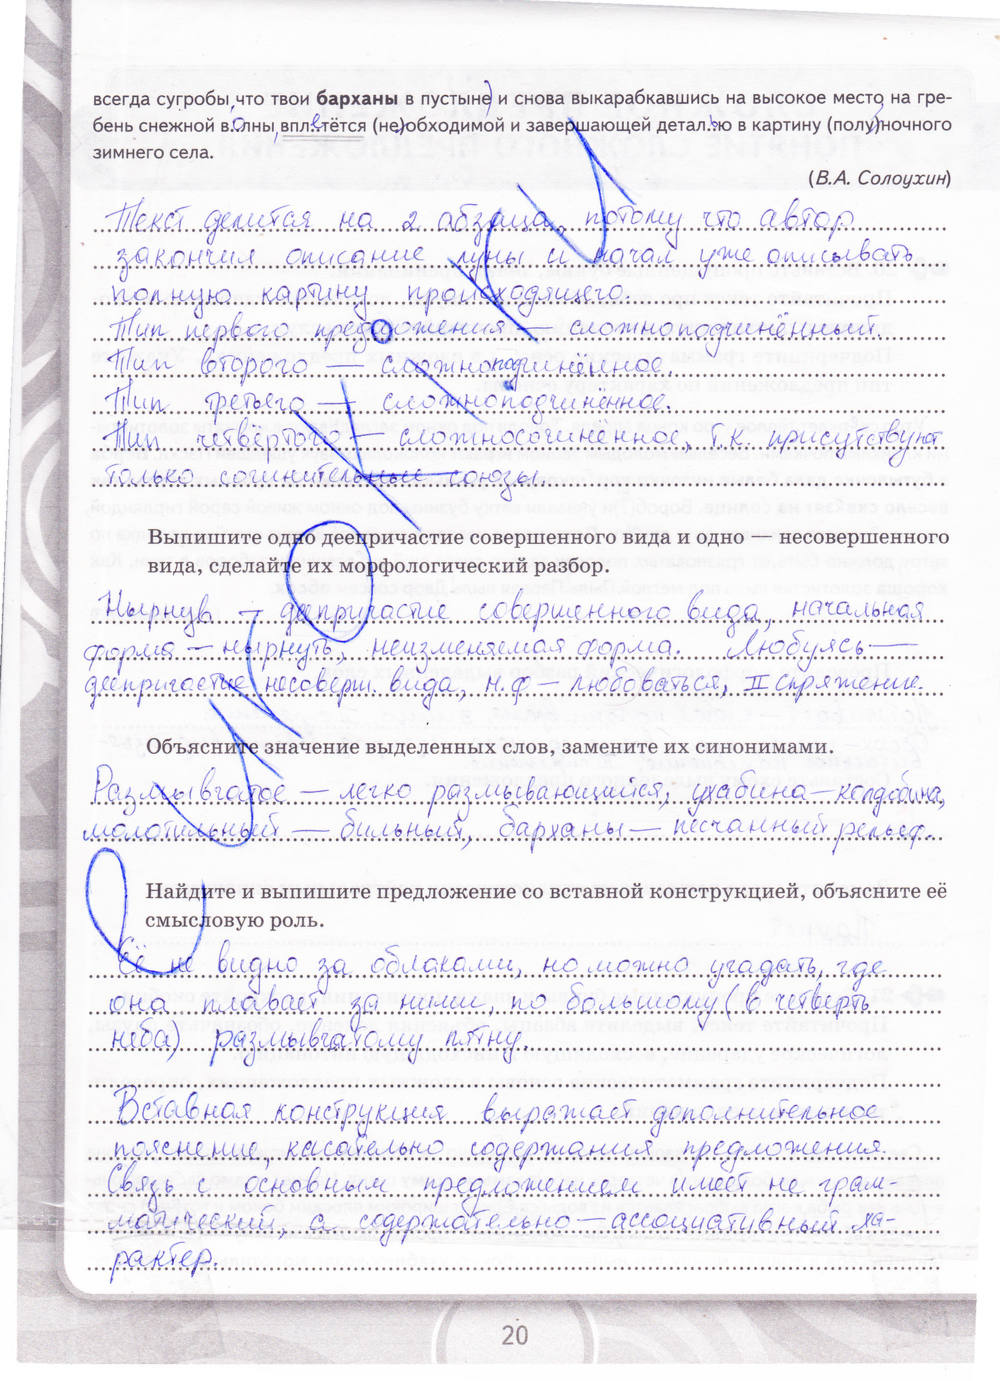 всегда сугробы, что твои барханы в пустыне) и снова выкарабкавшись на высокое место, на гре-
бень снежной волны, вплетётся (не)обходимой и завершающей деталью в картину (полу)ночного
зимнего села.
(В.А. Солоухин)
Текст делится на 2 абзаца, потому что автор
закончил описание луны и начал уже описывать
полную картину происходящего.
Тип первого предложения — сложноподчинённый.
Тип второго — сложноподчинённое.
Тип третьего — сложноподчиненное.
Тип четвёртого — сложносочинённое, т.к. присутствуют
только сочинительные союзы.
Выпишите одно деепричастие совершенного вида и одно — несовершенного
вида, сделайте их морфологический разбор.
Нырнув — деепричастие совершенного вида, начальная
форма — нырнуть, неизменяемая форма. Любуясь —
деепричастие несоверш. вида, н.ф — любоваться, II спряжение.
Объясните значение выделенных слов, замените их синонимами.
Размывчатое — легко размывающийся, ухабина — колдобина,
молотильный — бильный, барханы — песчанный рельеф.
Найдите и выпишите предложение со вставной конструкцией, объясните её
смысловую роль.
Её не видно за облаками, но можно угадать, где
она плавает за ними, по большому (в четверть
неба) размывчатому пятну.
Вставная конструкция выражает дополнительное
пояснение, касательно содержания предложения.
Связь с основным предложением имеет не грам-
матический, а содержательно — ассоциативный ха-
рактер.
20